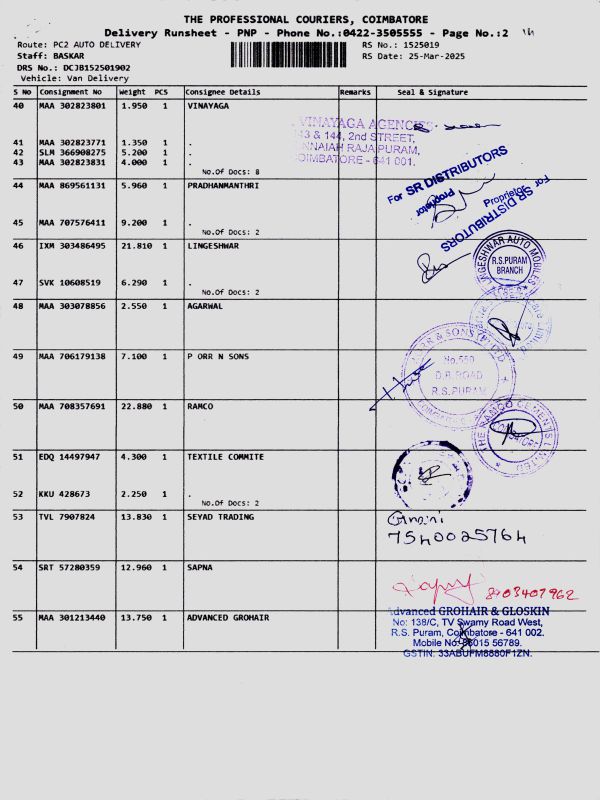 THE PROFESSIONAL COURIERS, COIMBATORE
Delivery Runsheet - PNP - Phone No.:0422-3505555 - Page No.:2
Route: PC2 AUTO DELIVERY RS No.: 1525019
Staff: BASKAR RS Date: 25-Mar-2025
DRS No.: DCJB152501902
Vehicle: Van Delivery
S No Consignment No Weight PCS Consignee Details Remarks Seal & Signature
40 MAA 302823801 1.950 1 VINAYAGA
VINAYAGA AGENCIES
143 & 144, 2nd STREET,
41 MAA 302823771 1.350 1 .
ANNAIAH RAJAPURAM,
42 SLM 366908275 5.200 1 .
COIMBATORE - 641 001.
43 MAA 302823831 4.000 1 .
No.Of Docs: 8
For SR DISTRIBUTORS
Proprietor
44 MAA 869561131 5.960 1 PRADHANMANTHRI
For SR DISTRIBUTORS
Proprietor
45 MAA 707576411 9.200 1 .
No.Of Docs: 2
46 IXM 303486495 21.810 1 LINGESHWAR
LINGESHWAR AUTO MOBILES
R.S.PURAM
BRANCH
47 SVK 10608519 6.290 1 .
No.Of Docs: 2
48 MAA 303078856 2.550 1 AGARWAL
49 MAA 706179138 7.100 1 P ORR N SONS
ORR & SONS (P) LTD
No.550
D.B. ROAD
R.S. PURAM
50 MAA 708357691 22.880 1 RAMCO
THE RAMCO CEMENTS LIMITED
COIMBATORE
51 EDQ 14497947 4.300 1 TEXTILE COMMITE
52 KKU 428673 2.250 1 .
No.Of Docs: 2
53 TVL 7907824 13.830 1 SEYAD TRADING
7540025764
54 SRT 57280359 12.960 1 SAPNA
8903407962
55 MAA 301213440 13.750 1 ADVANCED GROHAIR
Advanced GROHAIR & GLOSKIN
No: 138/C, TV Swamy Road West,
R.S. Puram, Coimbatose - 641 002.
Mobile No: 86015 56789.
GSTIN: 33ABUFM8880F1ZN.